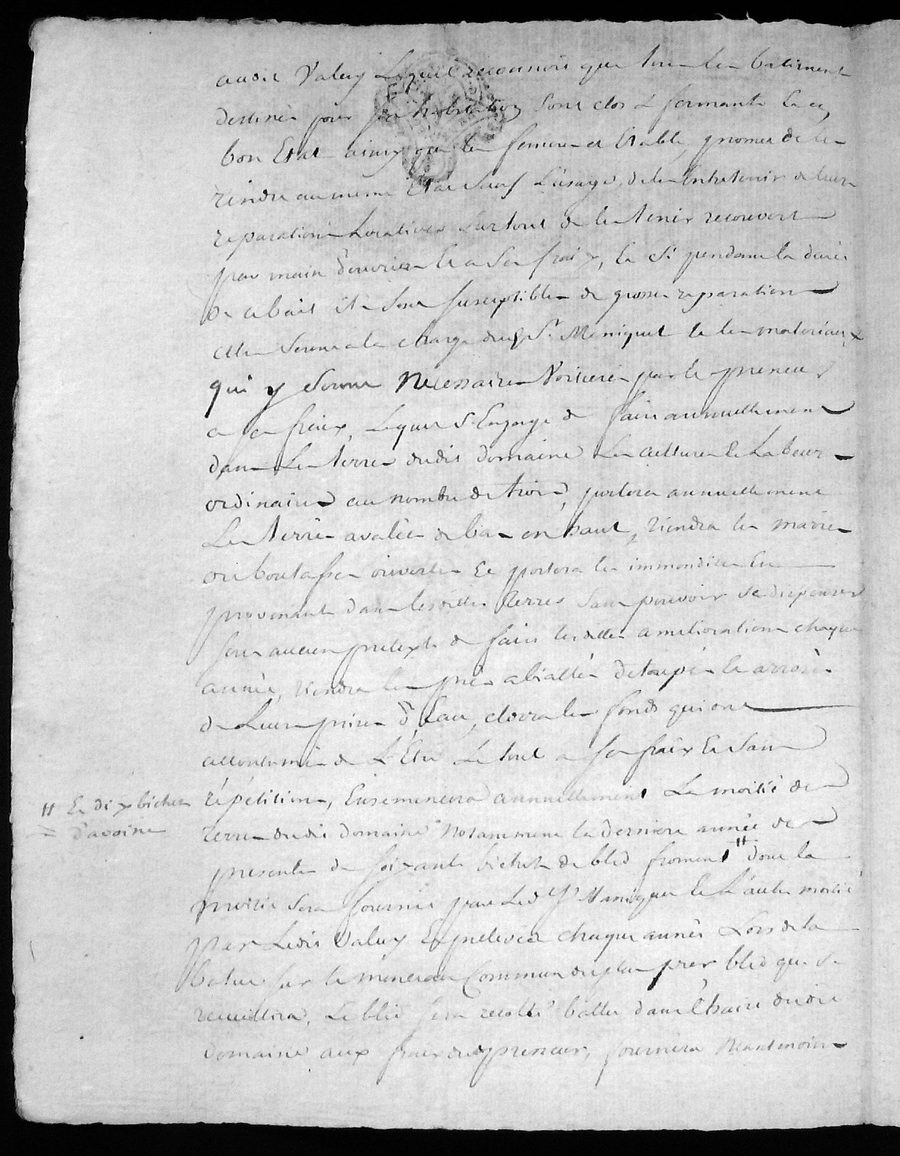 audit Valuy Lequel reconnois que tous les batiments
destinés pour son habitation sont clos & fermants En
bon Etat ainsy que les feniere et Etable, promet de les
rendre au même Etat Sauf L'usage, de les Entretenir de leurs
reparations Locatives Surtout de les tenir recouvert
par main d'ouvrier le a Ses fraix, Et Si pendant la durée
de ce bail ils Sont Susceptibles de grosses reparations
elles Seront a la charge dud. Sr. Meniquet Et les materiaux
qui y Seront Necessaires Voiturés par le preneur
a ses fraix, Lequel S'Engage de faire annuellement
dans Les terres dudit domaine Les cultures Et Labeurs
ordinaires au nombre de trois, portera annuellement
Les terres avalées de bas en haut, tiendra les
ou boutasses ouvertes Et portera les immondices En
provenant dans lesdittes terres Sans pouvoir se dispenser
Sous aucun pretexte de faire lesdittes ameliorations chaque
année, tiendra les prés Etaupés Et arrosés
de Leurs prises d'Eau, clorra les fonds qui ont
accoutumés de L'Etre Le tout a Ses fraix Et Sans
répétition, Ensemencera annuellement La moitié des
terres dudit domaine Notamment la derniere année des
presentes de soixante bichets de bled froment # dont la
moitié Sera fournie par Led. Sr. Meniquet Et L'autre moitié
par Ledit Valuy Et prelevée chaque année Lors de la
batue sur le monceau Commun du plus pur bled qui Se
recueillira, Le bled Sera recolté battu dans L'haire dudit
domaine aux fraix du preneur, fournira Neantmoins
# Et dix bichets
d'avoine